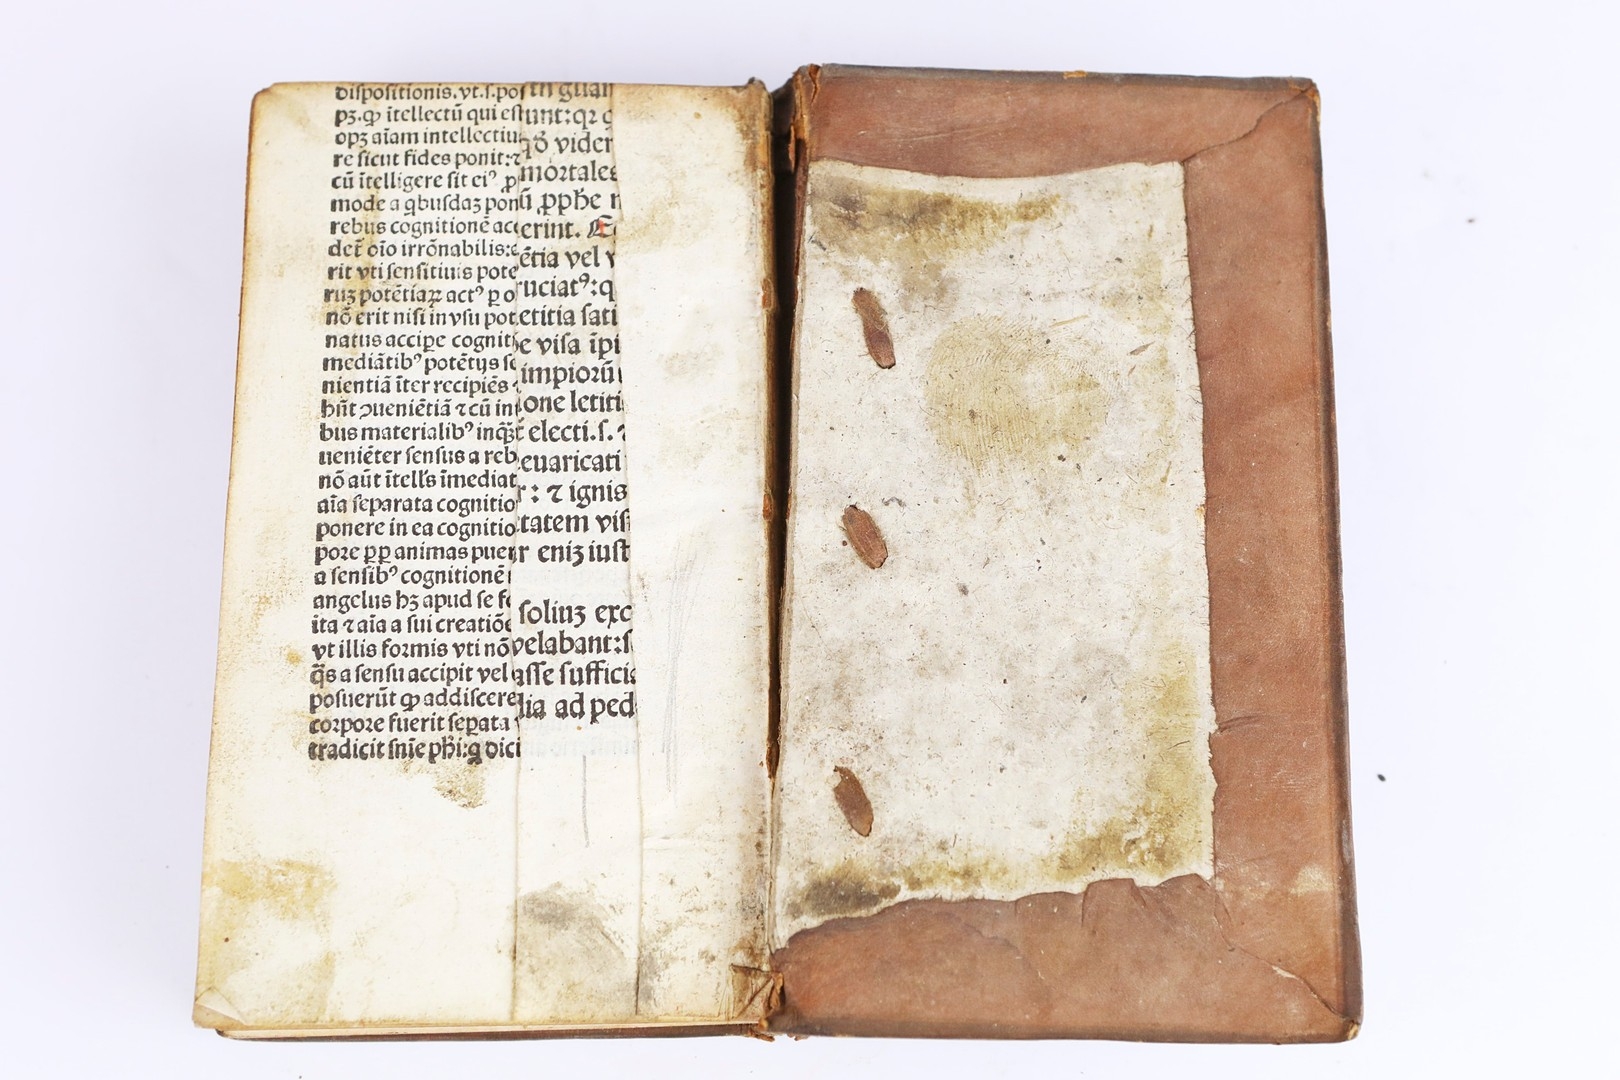 dispositionis.vt.s.pos
pꝫ.ꝙ ītellectū qui est
opꝫ aīam intellectiu
re sicut fides ponit:ꞇ
cū ītelligere sit eiꝰ ꝓ
mode a qbusdaꝫ pon
rebus cognitionē acc
deꞇ̄ oīo irrōnabilis:e
rit vti sensitiuis pote
ruꝫ potētiaꝝ actꝰ ꝑ o
nō erit nisi in vsu pot
natus accipe cognit
mediātibꝰ potētijs se
nientiā īter recipiēs
hn̄t ꝯueniētiā ꞇ cū in
bus materialibꝰ inq̄
ueniēter sensus a reb
nō aūt ītells īmediat
aīa separata cognitio
ponere in ea cognitio
pore ꝑꝑ animas puer
a sensibꝰ cognitionē
angelus hꝫ apud se fo
ita ꞇ aīa a sui creatiōe
vt illis formis vti nō
q̄s a sensu accipit vel
posuerūt ꝙ addiscere
corpore fuerit sepata
tradicit snīe phi:q dici
in quan
unt:qꝛ q
qð vider
mortales
ū ꝓphe
erint.
ētia vel v
ruciatꝰ:q
etitia sati
e visa īpi
impiorū
one letiti
electi.s.ꞇ
euaricati
r: ꞇ ignis
tatem vis
r eniꝫ iust
soliuꝫ exc
velabant:s
asse suffici
lia ad ped